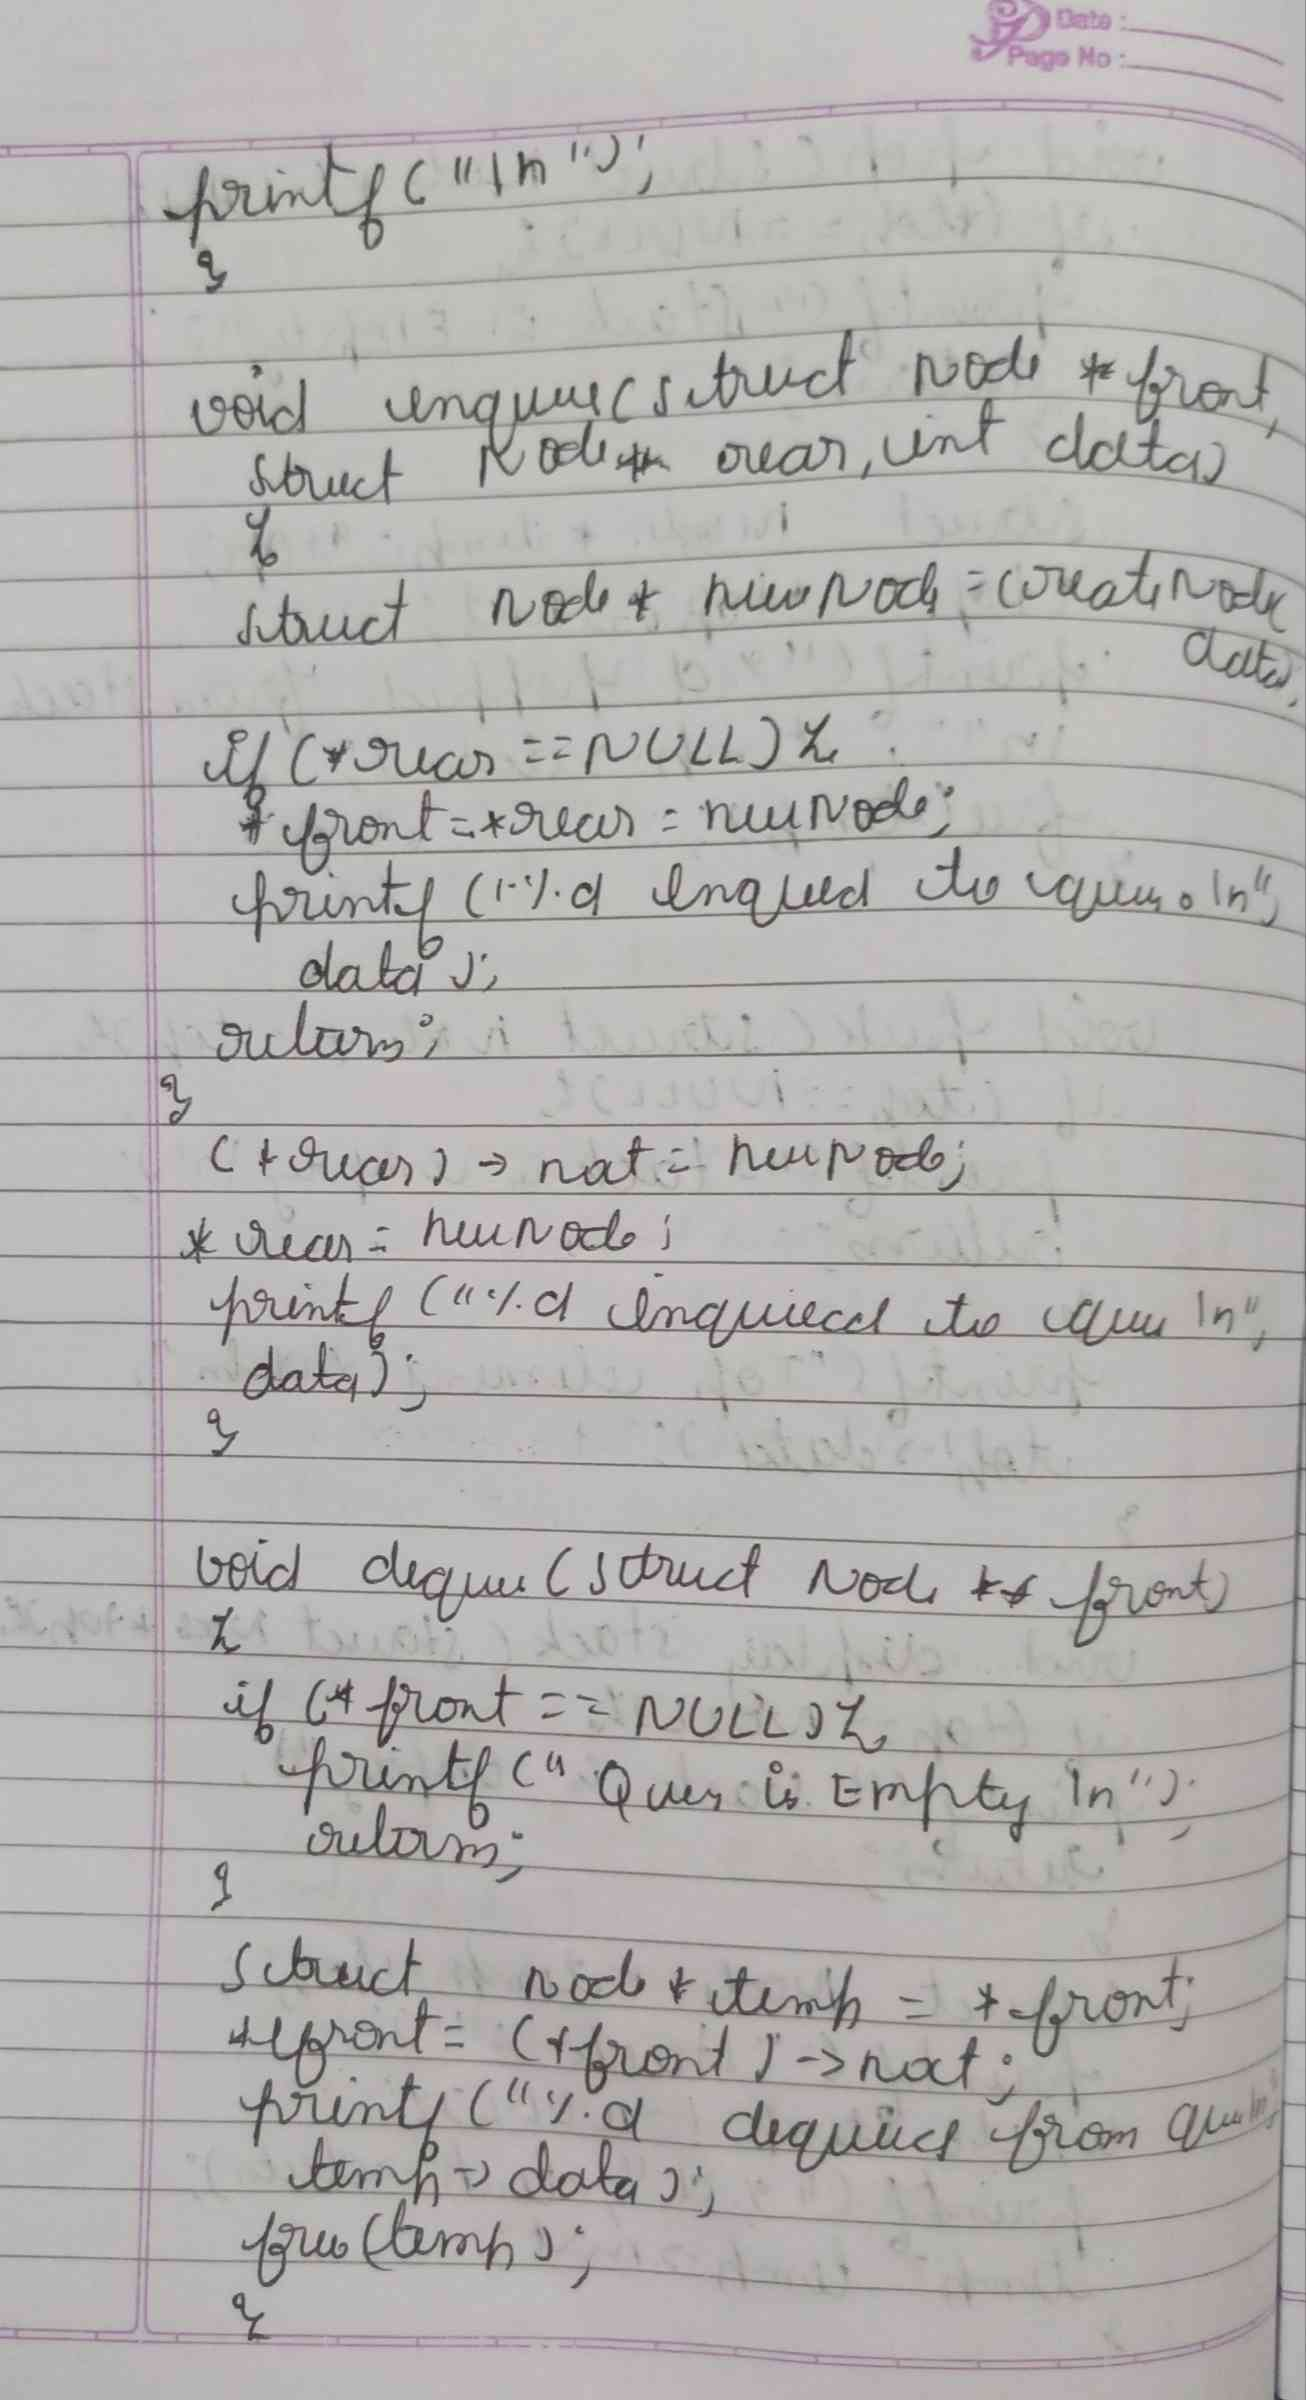 Date :
Page No :
printf("\n");
}
void enqueue(struct Node *front,
struct Node** rear, int data)
{
struct Node* newNode = createNode(
data);
if (*rear == NULL) {
*front = *rear = newNode;
printf ("%d enqueued to queue. \n",
data);
return;
}
(*rear) -> next = newNode;
*rear = newNode;
printf ("%d enqueued to queue \n",
data);
}
void dequeue (struct Node ** front)
{
if (*front == NULL) {
printf (" Queue is Empty \n");
return;
}
struct Node * temp = *front;
*front = (*front) -> next;
printf ("%d dequeued from queue \n",
temp -> data);
free (temp);
}